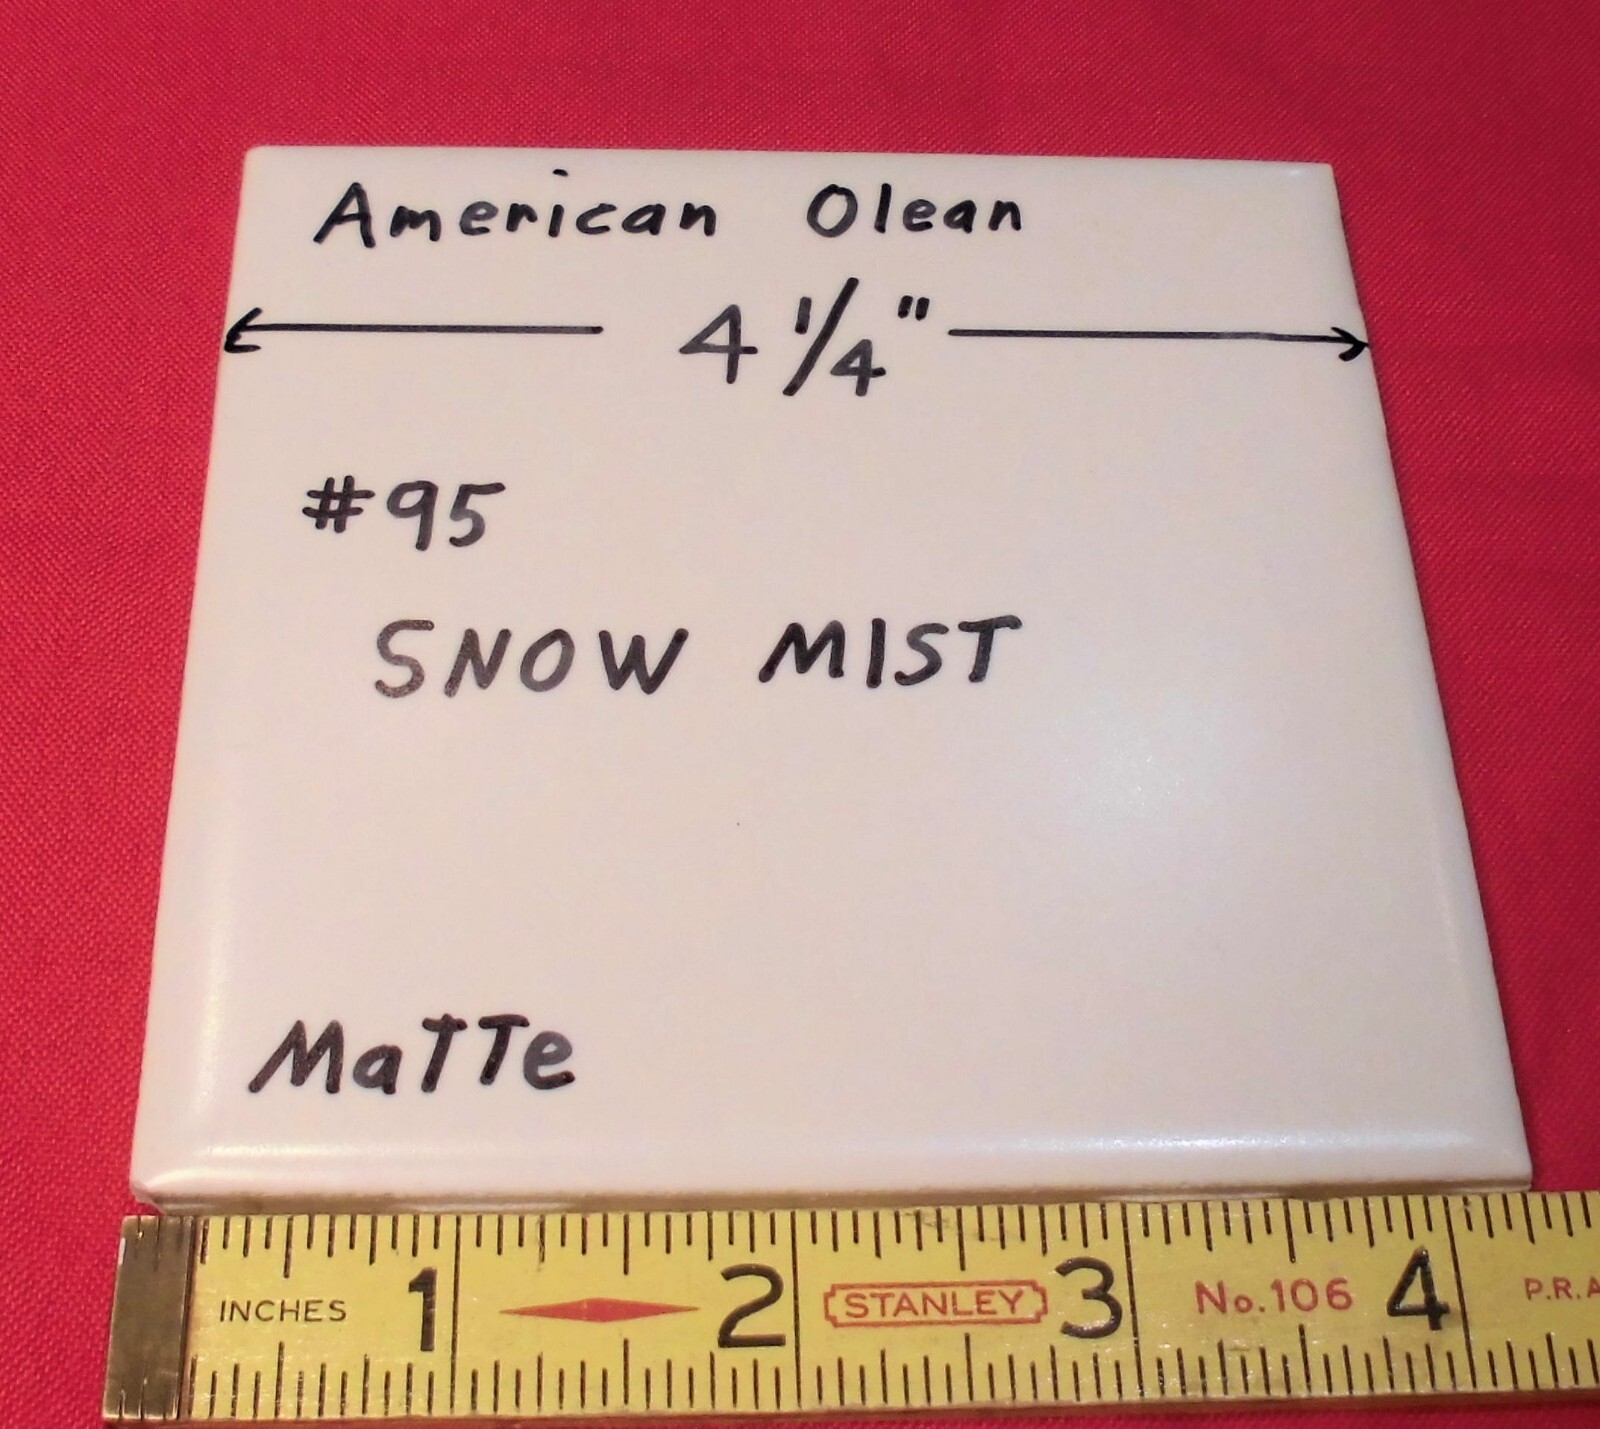 American Olean
4 1/4"
#95
SNOW MIST
MaTTe
INCHES 1 2 STANLEY 3 No.106 4 P.R.A